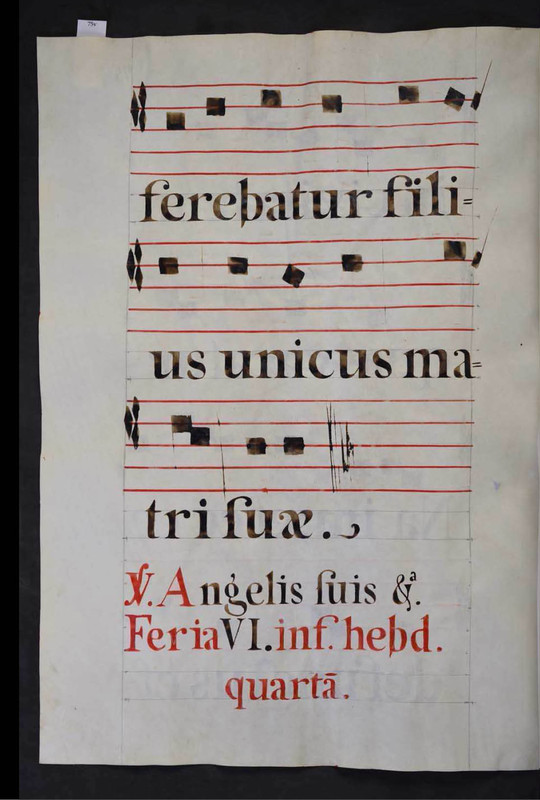 ferebatur fili=
us unicus ma=
tri ſuæ.
℣. Angelis ſuis &ª.
Feria VI. inf. hebd.
quartā.